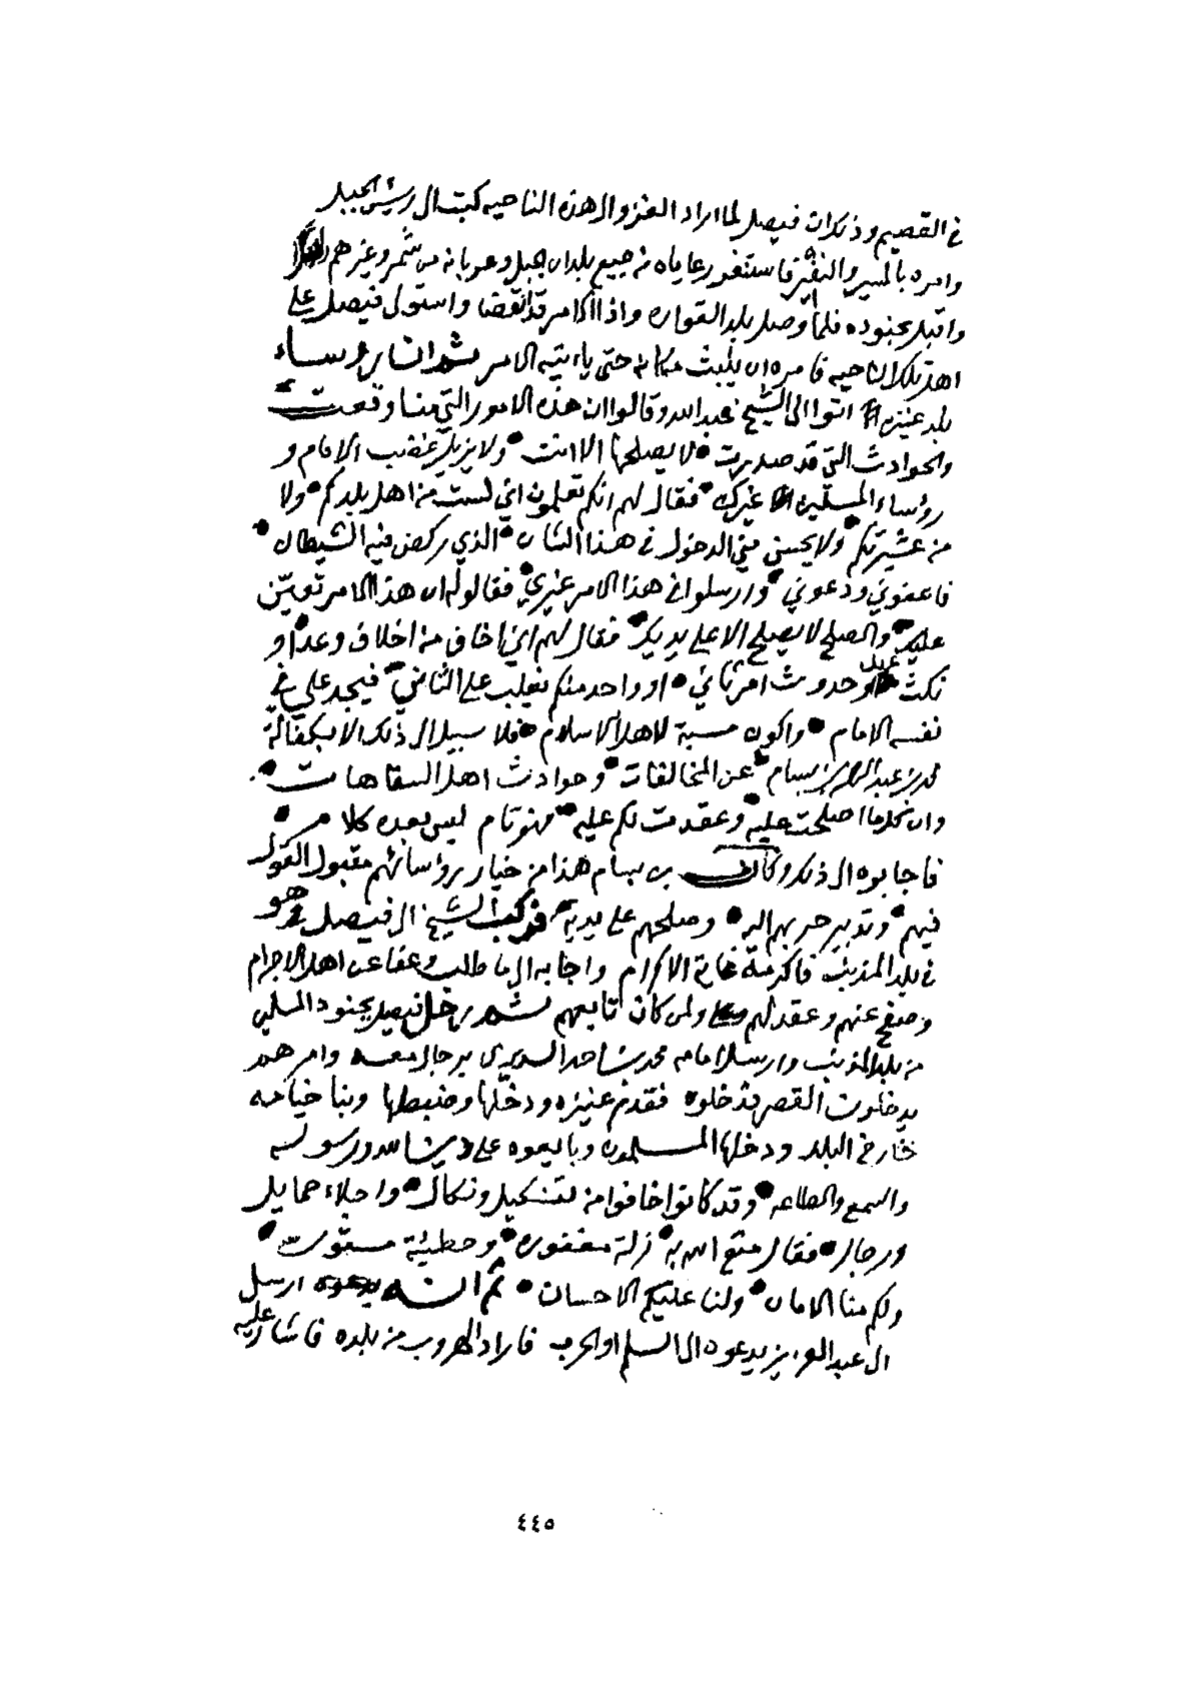 في القصيم وذكر ان فيصل لما اراد الغزو الى هذه الناحيه كتب الى رئيس الجبل
وامره بالمسير والنفير فاستنفر رعاياه من جميع بلدان الجبل وعربانه من شمر وغيرهم
واقبل بجنوده فلما وصل بلد القواره واذا الامر قد انقضا واستولى فيصل على
اهل تلك الناحيه فامره ان يلبث مكانه حتى ياءتيه الامر ثم ان رؤساء
بلد عنيزه اتوا الى الشيخ عبد الله وقالوا ان هذه الامور التي منا وقعت
والحوادث التي قد صدرت لا يصلحها الا انت ولا يزيل غضب الامام و
رؤساء المسلمين غيرك فقال لهم انكم تعلمون اني لست من اهل بلدكم ولا
من عشيرتكم ولا يحسن مني الدخول في هذا الشان الذي ركض فيه الشيطان
فاعفوني ودعوني وارسلوا في هذا الامر غيري فقالوا له ان هذا الامر تعين
عليك والصلح لا يصلح الا على يديك فقال لهم اني اخاف من اخلاف وعد او
نكث عهد او حدوث امر ثاني او واحد منكم يغلب على الثاني فيجد علي في
نفسه الامام واكون مسبة لاهل الاسلام فلا سبيل الى ذلك الا بكفالة
محمد بن عبد الرحمن بن بسام عن المخالفات وحوادث اهل السفاهات
وان كلما اصلحت عليه وعقدت لكم عليه فهو تام ليس بعده كلام
فاجابوه الى ذلك وكان بن بسام هذا من خيار رؤسائهم مقبول القول
فيهم وتدبير حربهم اليه وصلحهم على يديه فركب الشيخ الى فيصل وهو
في بلد المذنب فاكرمه غاية الاكرام واجابه الى ما طلب وعفا عن اهل الاجرام
وصفح عنهم وعقد لهم ولمن كان تابعهم ثم رحل فيصل بجنود المسلمين
من بلد المذنب وارسل امامه محمد بن احمد السديري برجال معه وامرهم
يدخلون القصر فدخلوه فقدم عنيزه ودخلها وضبطها وبنا خيامه
خارج البلد ودخلها المسلمون وبايعوه على دين الله ورسوله
والسمع والطاعه وقد كانوا خافوا من تنكيل ونكال واجلاء حمايل
ورجال فقال متع الله به زلة مغفوره وخطيئة مستوره
ولكم منا الامان ولنا عليكم الاحسان ثم انه ارسل
الى عبد العزيز يدعوه الى السلم او الحرب فاراد الهروب من بلده فاشار عليه
٤٤٥